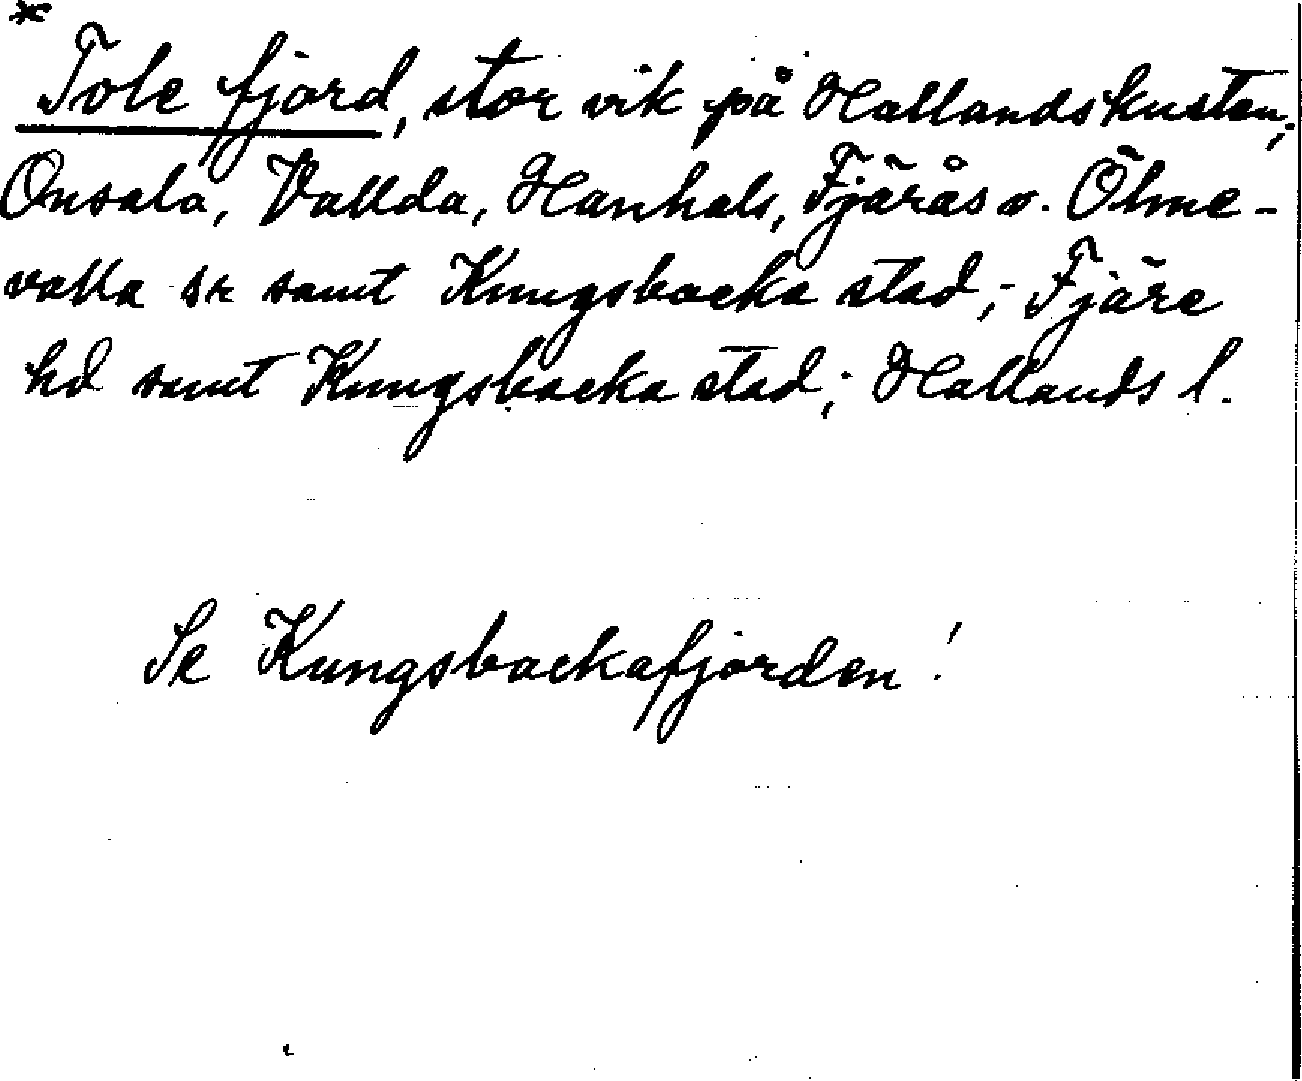 * Tole fjord, stor vik på Hallandskusten;
Onsala, Vallda, Hanhals, Fjärås o. Ölme-
valla sn samt Kungsbacka stad; Fjäre
hd samt Kungsbacka stad; Hallands l.
Se Kungsbackafjorden!